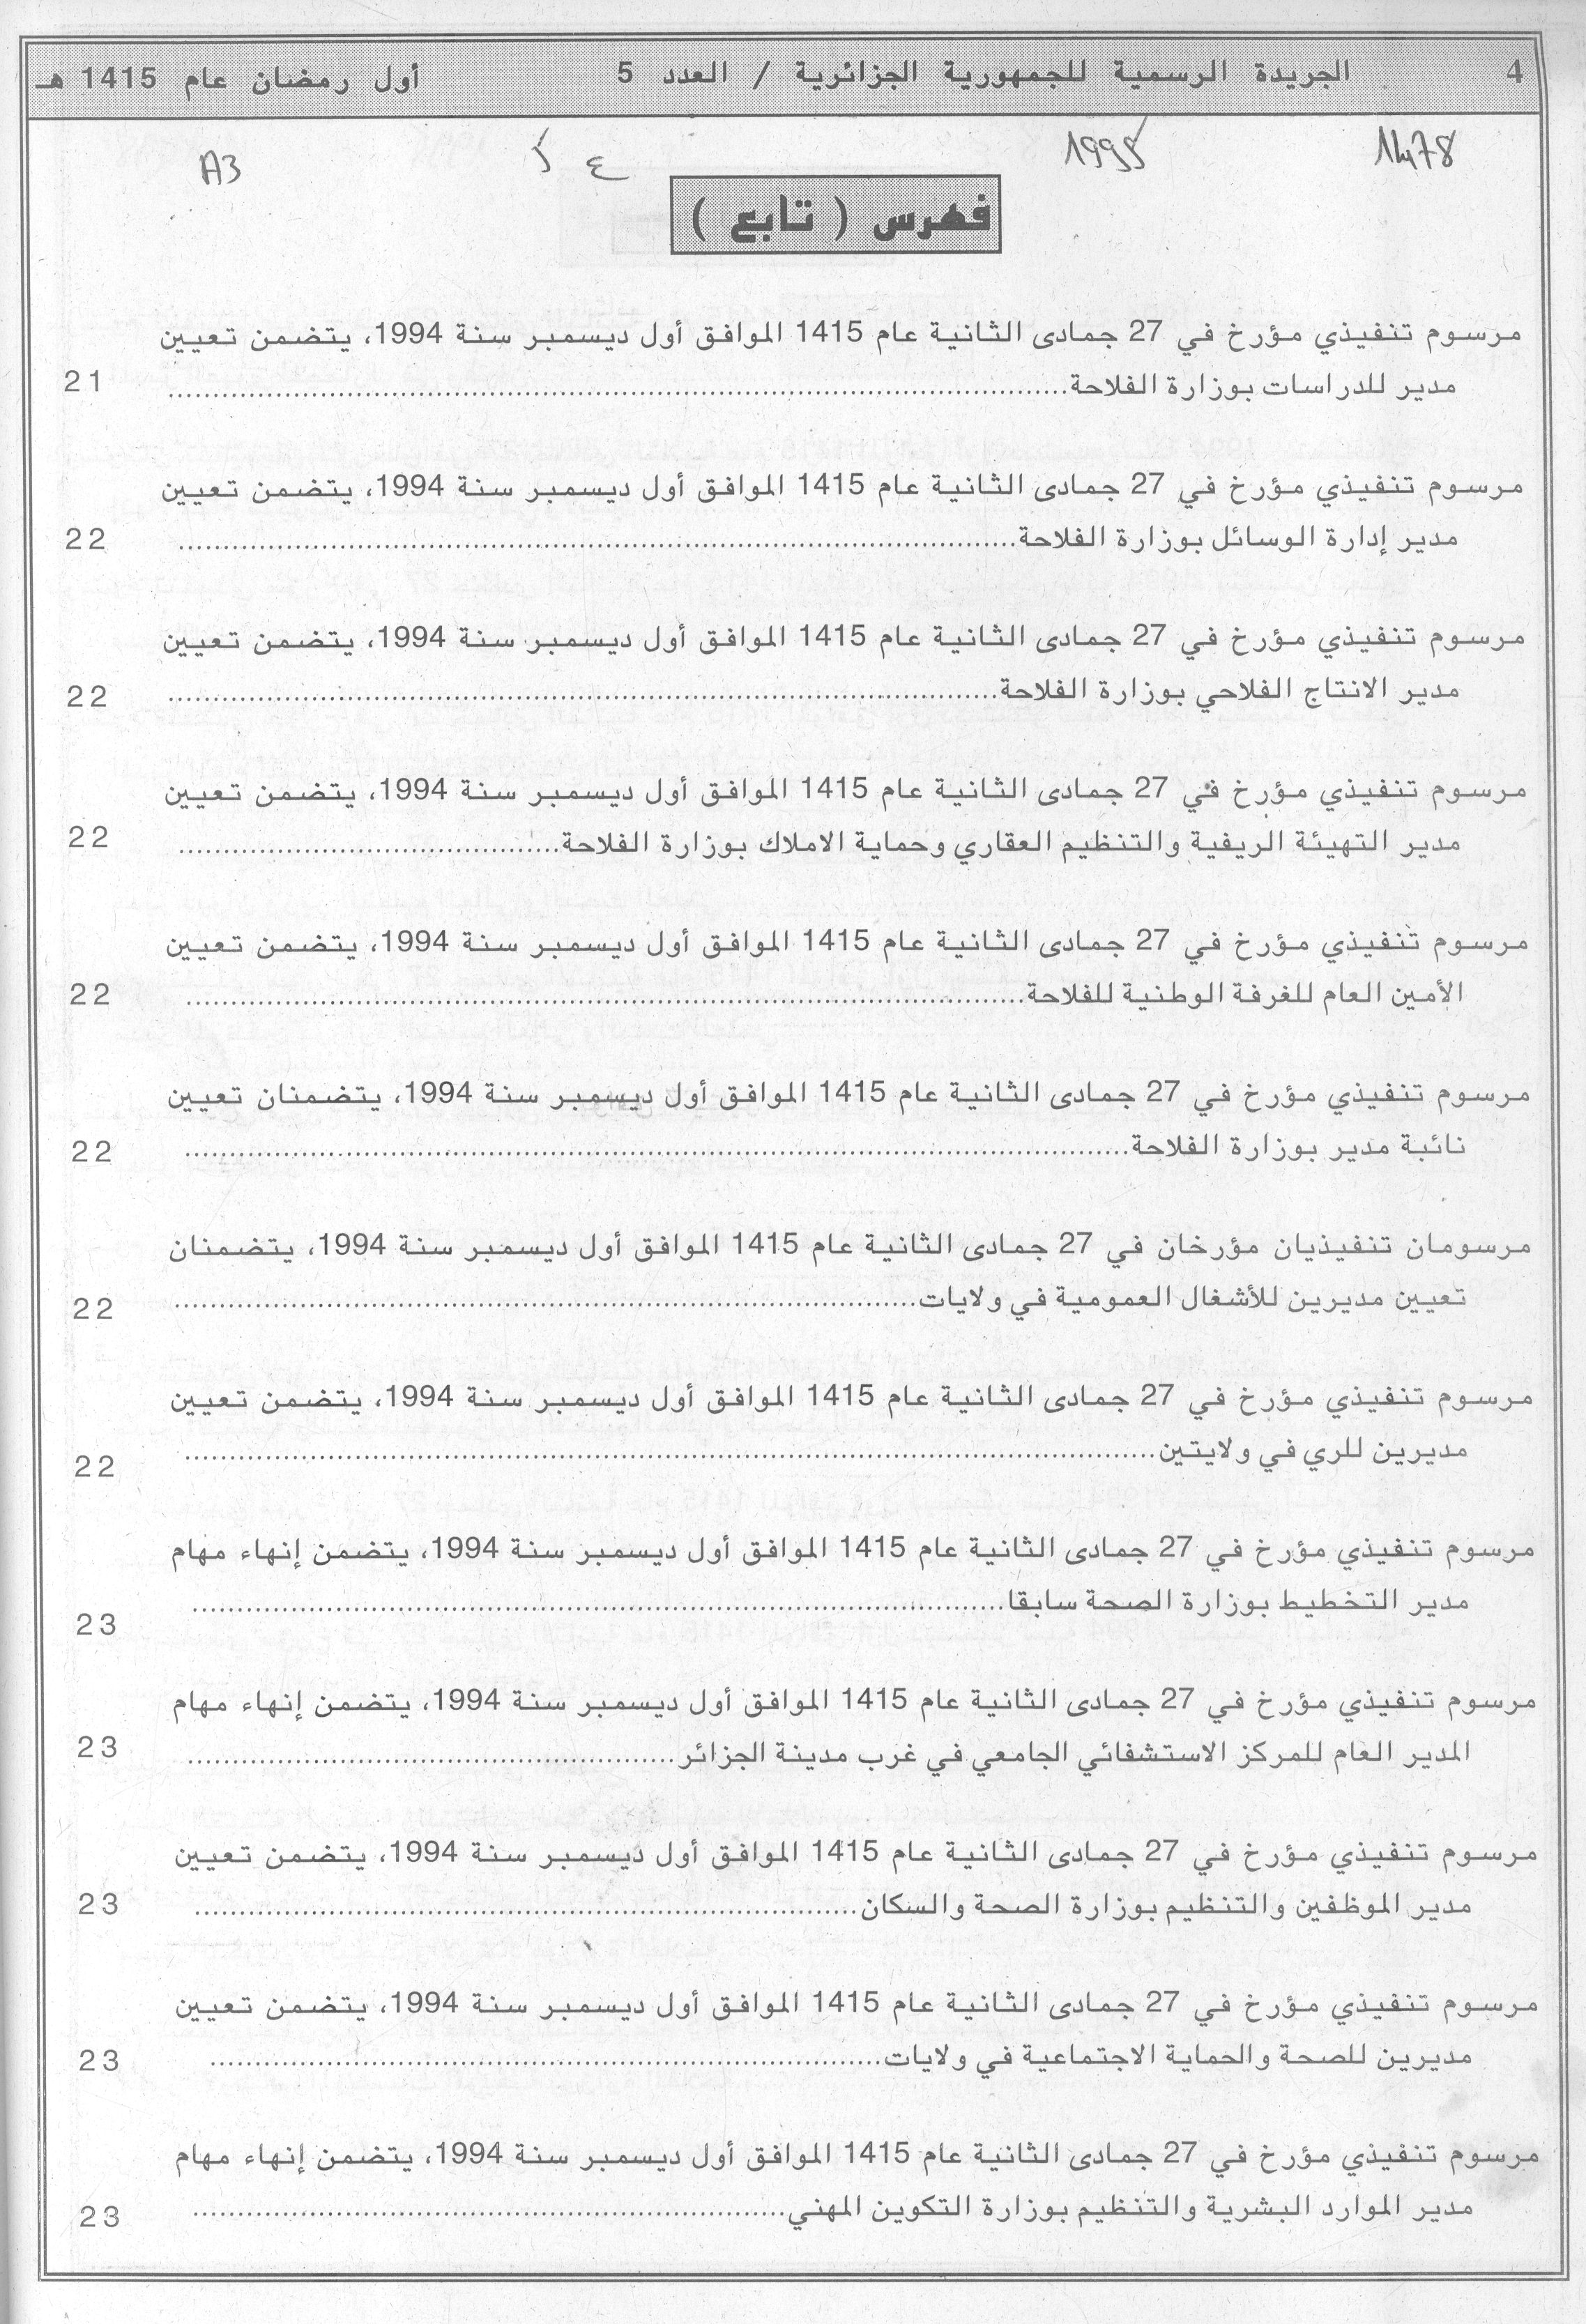 4 الجريدة الرسمية للجمهورية الجزائرية / العدد 5 أول رمضان عام 1415 هـ
1478 1995 ع 5 A3
فهرس ( تابع )
مرسوم تنفيذي مؤرخ في 27 جمادى الثانية عام 1415 الموافق أول ديسمبر سنة 1994، يتضمن تعيين
مدير للدراسات بوزارة الفلاحة........................................ 21
مرسوم تنفيذي مؤرخ في 27 جمادى الثانية عام 1415 الموافق أول ديسمبر سنة 1994، يتضمن تعيين
مدير إدارة الوسائل بوزارة الفلاحة........................................ 22
مرسوم تنفيذي مؤرخ في 27 جمادى الثانية عام 1415 الموافق أول ديسمبر سنة 1994، يتضمن تعيين
مدير الانتاج الفلاحي بوزارة الفلاحة........................................ 22
مرسوم تنفيذي مؤرخ في 27 جمادى الثانية عام 1415 الموافق أول ديسمبر سنة 1994، يتضمن تعيين
مدير التهيئة الريفية والتنظيم العقاري وحماية الاملاك بوزارة الفلاحة........................................ 22
مرسوم تنفيذي مؤرخ في 27 جمادى الثانية عام 1415 الموافق أول ديسمبر سنة 1994، يتضمن تعيين
الأمين العام للغرفة الوطنية للفلاحة........................................ 22
مرسوم تنفيذي مؤرخ في 27 جمادى الثانية عام 1415 الموافق أول ديسمبر سنة 1994، يتضمنان تعيين
نائبة مدير بوزارة الفلاحة........................................ 22
مرسومان تنفيذيان مؤرخان في 27 جمادى الثانية عام 1415 الموافق أول ديسمبر سنة 1994، يتضمنان
تعيين مديرين للأشغال العمومية في ولايات........................................ 22
مرسوم تنفيذي مؤرخ في 27 جمادى الثانية عام 1415 الموافق أول ديسمبر سنة 1994، يتضمن تعيين
مديرين للري في ولايتين........................................ 22
مرسوم تنفيذي مؤرخ في 27 جمادى الثانية عام 1415 الموافق أول ديسمبر سنة 1994، يتضمن إنهاء مهام
مدير التخطيط بوزارة الصحة سابقا........................................ 23
مرسوم تنفيذي مؤرخ في 27 جمادى الثانية عام 1415 الموافق أول ديسمبر سنة 1994، يتضمن إنهاء مهام
المدير العام للمركز الاستشفائي الجامعي في غرب مدينة الجزائر........................................ 23
مرسوم تنفيذي مؤرخ في 27 جمادى الثانية عام 1415 الموافق أول ديسمبر سنة 1994، يتضمن تعيين
مدير الموظفين والتنظيم بوزارة الصحة والسكان........................................ 23
مرسوم تنفيذي مؤرخ في 27 جمادى الثانية عام 1415 الموافق أول ديسمبر سنة 1994، يتضمن تعيين
مديرين للصحة والحماية الاجتماعية في ولايات........................................ 23
مرسوم تنفيذي مؤرخ في 27 جمادى الثانية عام 1415 الموافق أول ديسمبر سنة 1994، يتضمن إنهاء مهام
مدير الموارد البشرية والتنظيم بوزارة التكوين المهني........................................ 23